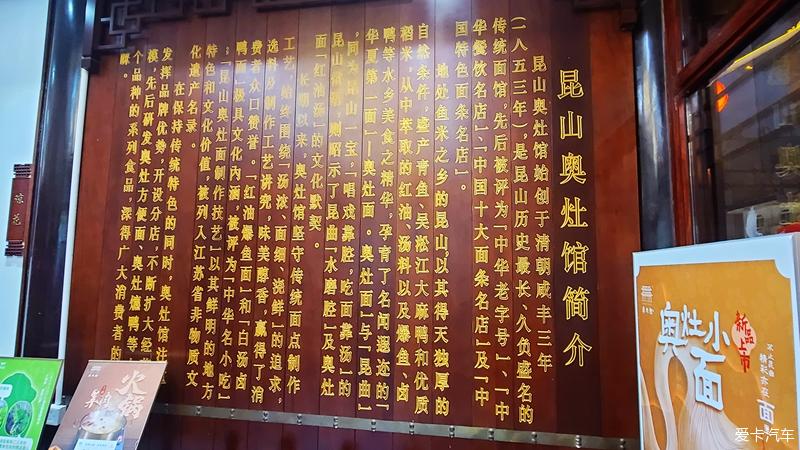 昆山奥灶馆简介
昆山奥灶馆始创于清朝咸丰三年
(一八五三年),是昆山历史最长、久负盛名的
传统面馆,先后被评为「中华老字号」、「中
华餐饮名店」、「中国十大面条名店」及「中
国特色面条名店」。
地处鱼米之乡的昆山,以其得天独厚的
自然条件,盛产青鱼、吴淞江大麻鸭和优质
稻米,从中萃取的红油、汤料以及爆鱼、卤
鸭等水乡美食之精华,孕育了名闻遐迩的「
华夏第一面」—奥灶面。奥灶面」与「昆曲」
,同为昆山一宝,「唱戏靠腔,吃面靠汤」的
昆山 ,则昭示了昆曲「水磨腔」及奥灶
面「红油汤」的文化默契。
长期以来,奥灶馆坚守传统面点制作
工艺,始终围绕「汤浓、面细、浇鲜」的追求,
选料及制作工艺讲究,味美醇香,赢得了消
费者众口赞誉。「红油爆鱼面」和「白汤卤
鸭面」极具文化内涵,被评为「中华名小吃」
;「昆山奥灶面制作技艺」以其鲜明的地方
特色和文化价值,被列入江苏省非物质文
化遗产名录。
在保持传统特色的同时,奥灶馆注
发挥品牌优势,开设分店,不断扩大经
模,先后研发奥灶方便面、奥灶爊鸭等
个品种的系列食品,深得广大消费者的
睐。
琼花
火锅
新品上市
奥灶小面
面
爱卡汽车